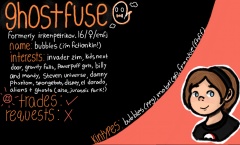 ghostfuse
formerly irkenpetrikov, 16/9/enfj
name: bubbles (i'm fictionkin!)
interests: invader zim, kids next
door, gravity falls, powerpuff girls, billy
and mandy, steven universe, danny
phantom, spongebob, disney, el dorado,
aliens + ghosts (also, jurassic park!)
trades: ✓
requests: X
kintypes: bubbles (ppg)